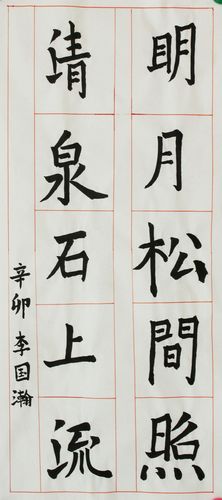 明月松間照
清泉石上流
辛卯李国瀚